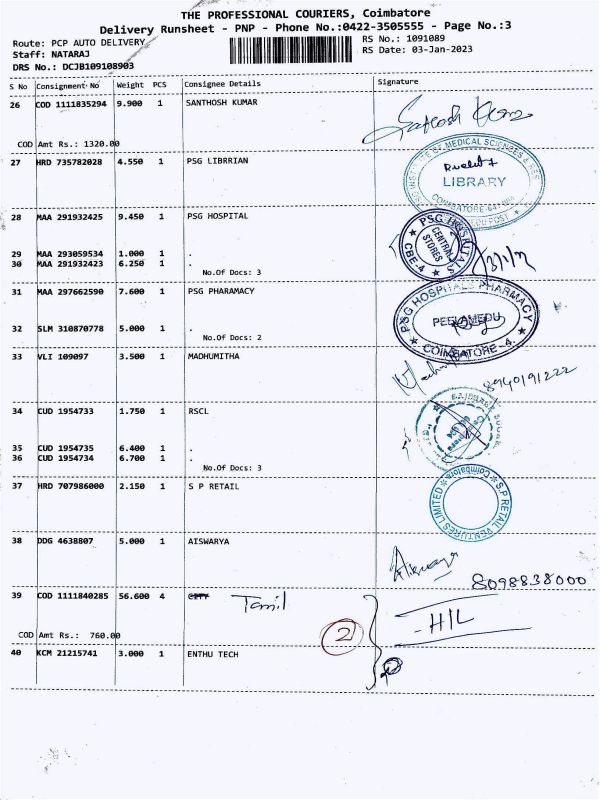 THE PROFESSIONAL COURIERS, Coimbatore
Delivery Runsheet - PNP - Phone No.:0422-3505555 - Page No.:3
Route: PCP AUTO DELIVERY
RS No.: 1091089
Staff: NATARAJ
RS Date: 03-Jan-2023
DRS No.: DCJB109108903
S No Consignment No Weight PCS Consignee Details Signature
26 COD 1111835294 9.900 1 SANTHOSH KUMAR
Santhosh Kumar
COD Amt Rs.: 1320.00
27 HRD 735782028 4.550 1 PSG LIBRRIAN
MEDICAL SCIENCES &
LIBRARY
28 MAA 291932425 9.450 1 PSG HOSPITAL
PSG HOSPITALS
CENTRAL
STORES
CBE-4
29 MAA 293059534 1.000 1 .
30 MAA 291932423 6.250 1 .
No.Of Docs: 3
31 MAA 297662590 7.600 1 PSG PHARAMACY
PSG HOSPITALS PHARMACY
PEELAMEDU
COIMBATORE - 4.
32 SLM 310870778 5.000 1 .
No.Of Docs: 2
33 VLI 109097 3.500 1 MADHUMITHA
8940191222
34 CUD 1954733 1.750 1 RSCL
35 CUD 1954735 6.400 1 .
36 CUD 1954734 6.700 1 .
No.Of Docs: 3
37 HRD 707986000 2.150 1 S P RETAIL
S.P RETAIL VENTURES LIMITED
Coimbatore
38 DDG 4638807 5.000 1 AISWARYA
8098838000
39 COD 1111840285 56.600 4 CITY Tamil
COD Amt Rs.: 760.00
2
- H/L
40 KCM 21215741 3.000 1 ENTHU TECH